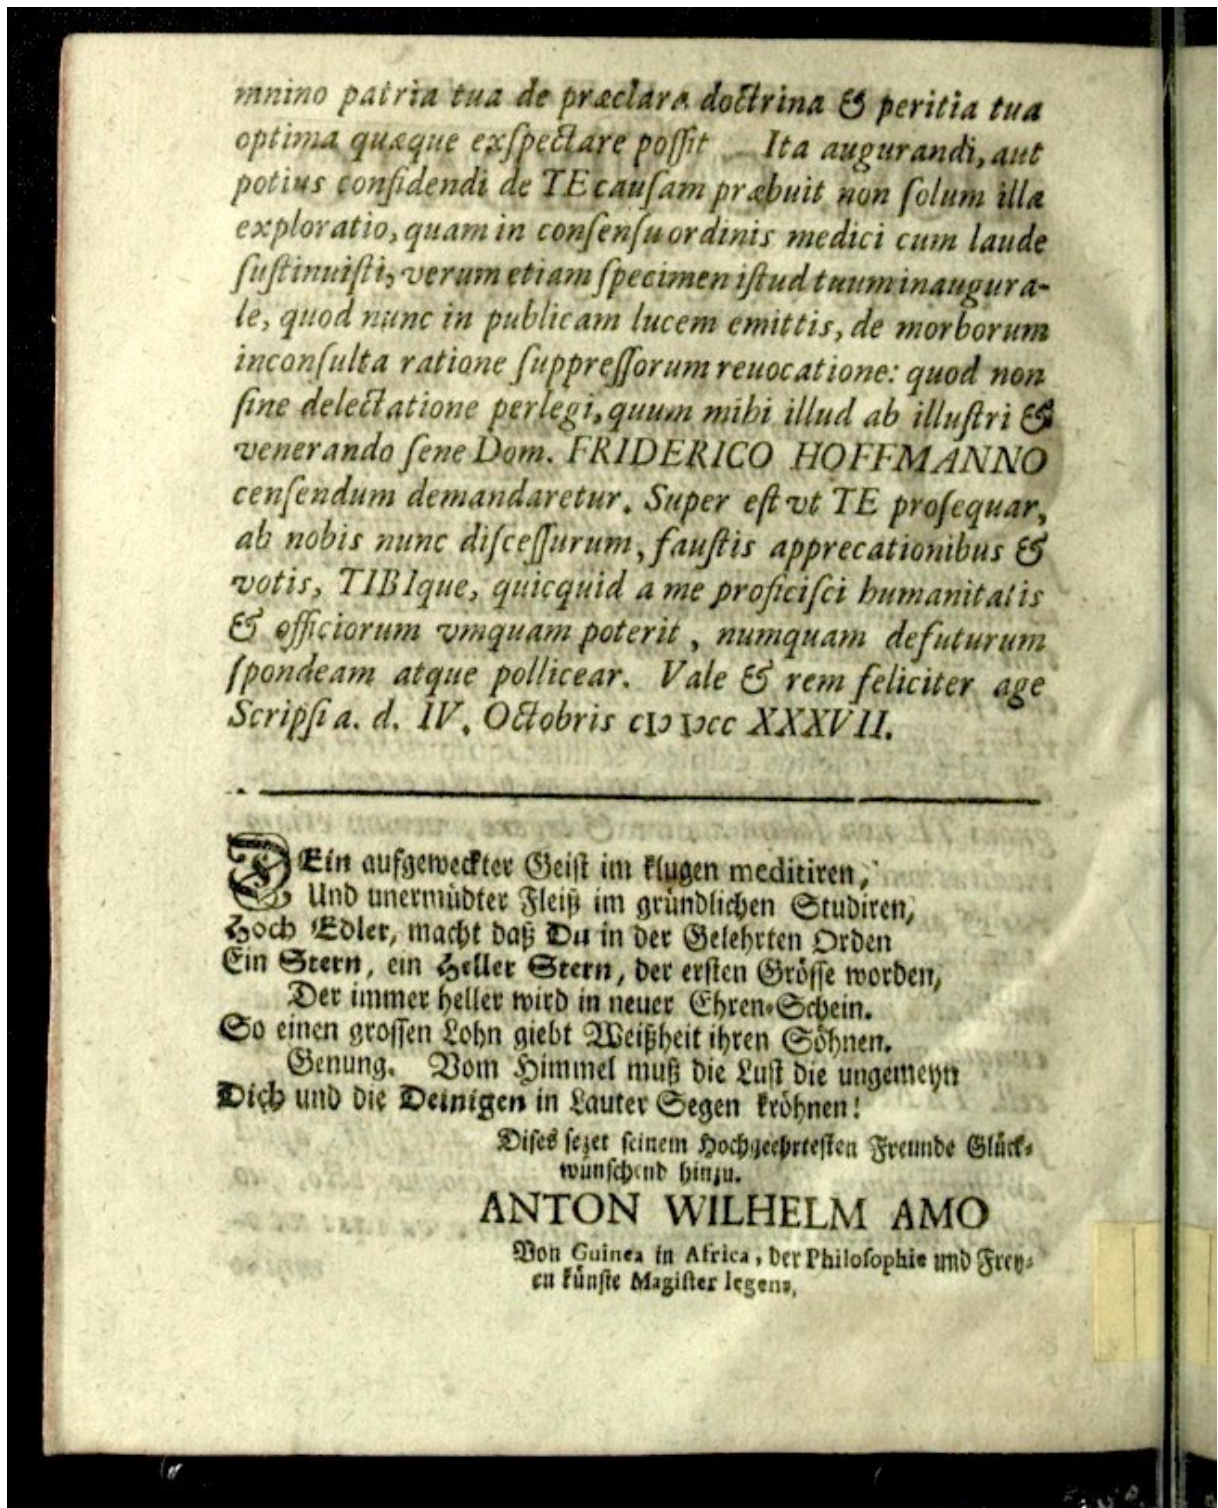 mnino patria tua de præclara doctrina & peritia tua
optima quæque exſpectare poſſit Ita augurandi, aut
potius confidendi de TE cauſam præbuit non ſolum illa
exploratio, quam in conſenſu ordinis medici cum laude
ſuſtinuiſti, verum etiam ſpecimen iſtud tuum inaugura-
le, quod nunc in publicam lucem emittis, de morborum
inconſulta ratione ſuppreſſorum reuocatione: quod non
ſine delectatione perlegi, quum mihi illud ab illuſtri &
venerando ſene Dom. FRIDERICO HOFFMANNO
cenſendum demandaretur. Super eſt vt TE proſequar,
ab nobis nunc diſceſſurum, fauſtis apprecationibus &
votis, TIBIque, quicquid a me proficiſci humanitatis
& officiorum vmquam poterit, numquam defuturum
ſpondeam atque pollicear. Vale & rem feliciter age
Scripſi a. d. IV. Octobris cIↄ Iↄcc XXXVII.
DEin aufgeweckter Geiſt im klugen meditiren,
Und unermüdter Fleiß im gründlichen Studiren,
Hoch Edler, macht daß Du in der Gelehrten Orden
Ein Stern, ein Heller Stern, der erſten Gröſſe worden,
Der immer heller wird in neuer Ehren-Schein.
So einen groſſen Lohn giebt Weißheit ihren Söhnen.
Genung. Vom Himmel muß die Luſt die ungemeyn
Dich und die Deinigen in Lauter Segen kröhnen!
Diſes ſezet ſeinem Hochgeehrteſten Freunde Glück-
wünſchend hinzu.
ANTON WILHELM AMO
Von Guinea in Africa, der Philoſophie und Frey-
en künſte Magiſter legens,